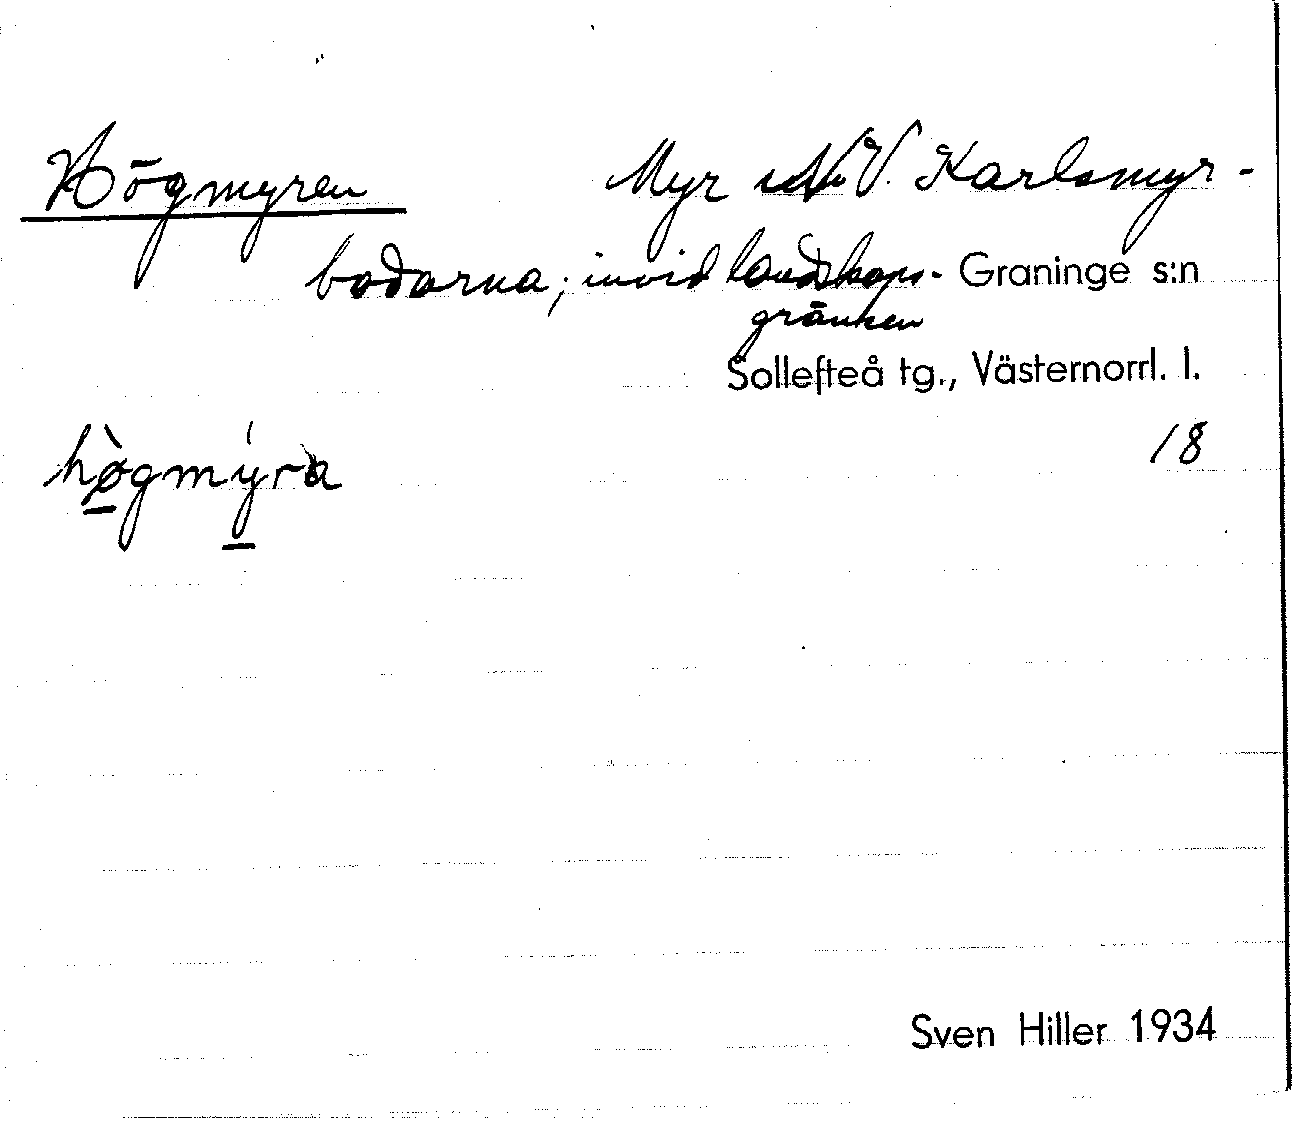 Högmyren Myr NV. Karlsmyr-
bodarna; invid landskaps- Graninge s:n
gränsen
Sollefteå tg., Västernorrl. l.
hø̀gmýra 18
Sven Hiller 1934